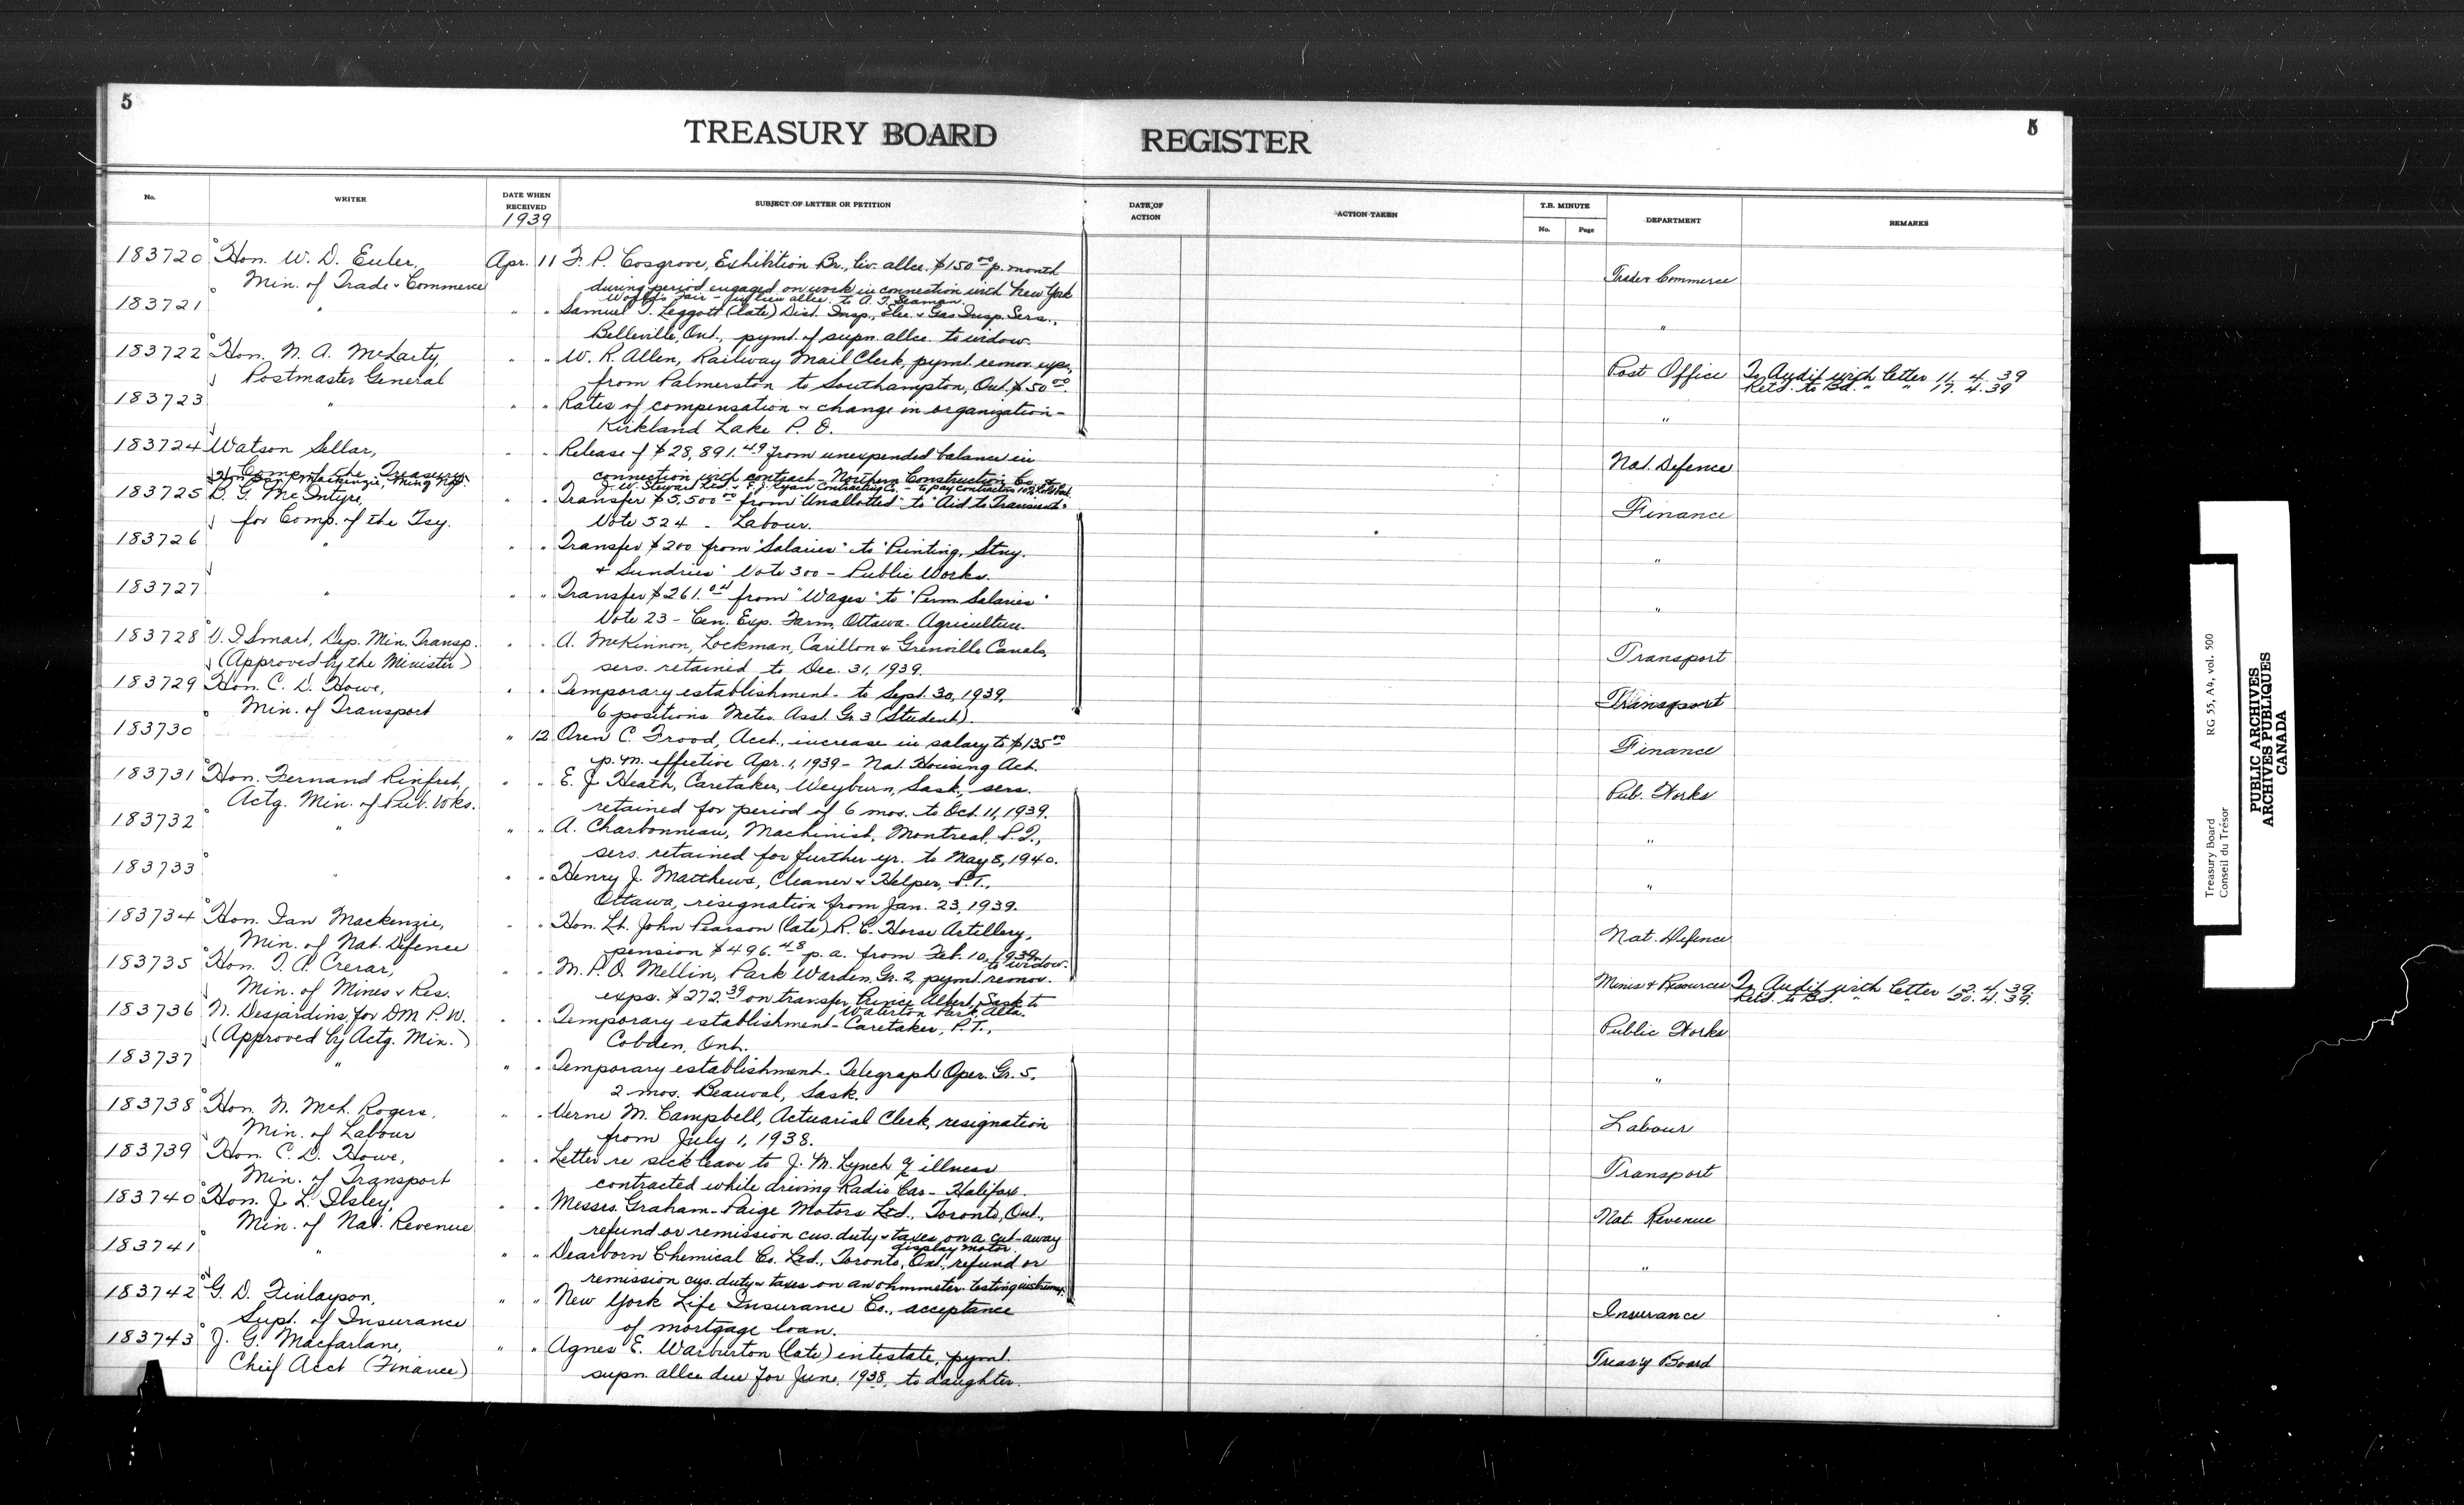 5
5
TREASURY BOARD REGISTER
No.
WRITER
DATE WHEN RECEIVED
1939
SUBJECT OF LETTER OR PETITION
DATE OF ACTION
ACTION TAKEN
T.B. MINUTE
No.
Page
DEPARTMENT
REMARKS
183720 Hon. W. D. Euler, Apr. 11 F. P. Cosgrove, Exhibition Br., liv. allce. $150.00 p. month
Min. of Trade & Commerce during period engaged on work in connection with New York Trade & Commerce
World's Fair - in lieu allce. to A. T. Seaman.
183721 " " " Samuel T. Leggott (late) Dist. Insp., Elec. & Gas Insp. Serv.,
Belleville, Ont., pymt. of supn. allce. to widow. "
183722 Hon. N. A. McLarty, " " W. R. Allen, Railway Mail Clerk, pymt. remov. exps. Post Office To Audit with letter 11. 4. 39
Postmaster General from Palmerston to Southampton, Ont. $50.00. Retd. to Bd. " " 17. 4. 39
183723 " " " Rates of compensation & change in organization -
Kirkland Lake P. O. "
183724 Watson Sellar, " " Release of $28,891.49 from unexpended balance in Nat. Defence
Comp. of the Treasury connection with contract - Northern Construction Co. &
Hon. Ian Mackenzie, Min of N.D. J. W. Stewart Ltd. & E. J. Ryan Contracting Co. - to pay contractors 10%
183725 B. G. McIntyre, " " Transfer $5,500.00 from "Unallotted" to "Aid to Transients" Finance
for Comp. of the Tsy. Vote 524 - Labour.
183726 " " " Transfer $200 from "Salaries" to "Printing, Stny.
& Sundries" Vote 300 - Public Works. "
183727 " " " Transfer $261.04 from "Wages" to "Perm. Salaries"
Vote 23 - Cen. Exp. Farm, Ottawa - Agriculture. "
183728 V. I. Smart, Dep. Min. Transp. " " A. McKinnon, Lockman, Carillon & Grenville Canals,
(Approved by the Minister) sers. retained to Dec. 31, 1939. Transport
183729 Hon. C. D. Howe, " " Temporary establishment - to Sept. 30, 1939,
Min. of Transport 6 positions Meteo. Asst. Gr. 3 (Student). Transport
183730 " 12 Oren C. Frood, Acct., increase in salary to $135.00
p. m. effective Apr. 1, 1939 - Nat. Housing Act. Finance
183731 Hon. Fernand Rinfret, " " E. J. Heath, Caretaker, Weyburn, Sask., sers.
Actg. Min. of Pub. Wks. retained for period of 6 mos. to Oct. 11, 1939. Pub. Works
183732 " " " A. Charbonneau, Machinist, Montreal, P. Q.,
sers. retained for further yr. to May 8, 1940. "
183733 " " " Henry J. Matthews, Cleaner & Helper, P.T.,
Ottawa, resignation from Jan. 23, 1939. "
183734 Hon. Ian Mackenzie, " " Hon. Lt. John Pearson (late) R. C. Horse Artillery,
Min. of Nat. Defence pension $496.48 p. a. from Feb. 10, 1939, to widow. Nat. Defence
183735 Hon. T. A. Crerar, " " M. P. O. Mellin, Park Warden, Gr. 2, pymt. remov. Mines & Resources To Audit with letter 12. 4. 39.
Min. of Mines & Res. exps. $272.39 on transfer Prince Albert, Sask. to Retd. to Bd. " " 20. 4. 39.
Waterton Park, Alta.
183736 N. Desjardins, for DM P. W. " " Temporary establishment - Caretaker, P.T.,
(Approved by Actg. Min.) Cobden, Ont. Public Works
183737 " " " Temporary establishment - Telegraph Oper. Gr. 5,
2 mos. Beauval, Sask. "
183738 Hon. N. McL. Rogers, " " Verne M. Campbell, Actuarial Clerk, resignation
Min. of Labour from July 1, 1938. Labour
183739 Hon. C. D. Howe, " " Letter re sick leave to J. M. Lynch & illness
Min. of Transport contracted while driving Radio Car - Halifax. Transport
183740 Hon. J. L. Ilsley, " " Messrs. Graham-Paige Motors Ltd., Toronto, Ont.,
Min. of Nat. Revenue refund or remission cus. duty & taxes on a cut-away Nat. Revenue
display motor.
183741 " " " Dearborn Chemical Co. Ltd., Toronto, Ont., refund or
remission cus. duty & taxes on an ohmmeter testing instrumt. "
183742 G. D. Finlayson, " " New York Life Insurance Co., acceptance
Supt. of Insurance of mortgage loan. Insurance
183743 J. G. Macfarlane, " " Agnes E. Warburton (late) intestate, pymt.
Chief Acct (Finance) supn. allce due for June, 1938, to daughter. Treas'y Board
Treasury Board RG 55, A4, vol. 500
Conseil du Trésor
PUBLIC ARCHIVES
ARCHIVES PUBLIQUES
CANADA